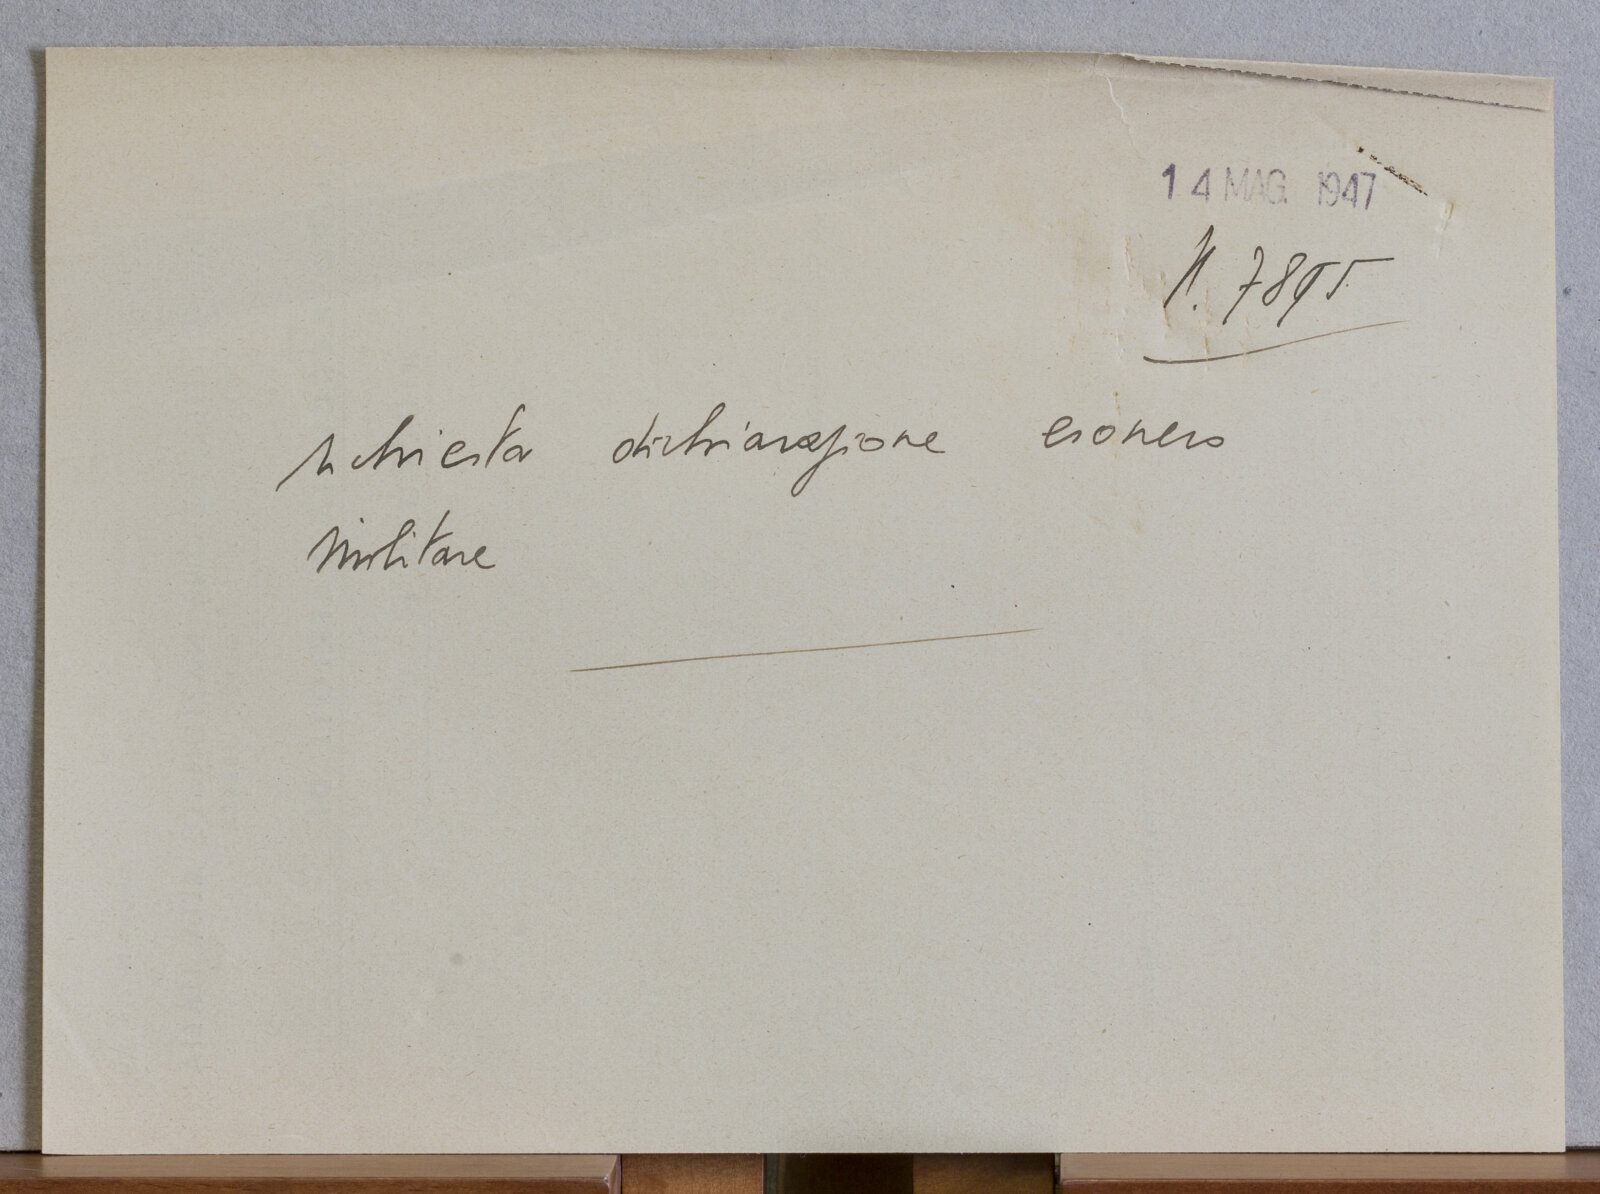 14 MAG. 1947
N. 7895
richiesta dichiarazione esonero
militare